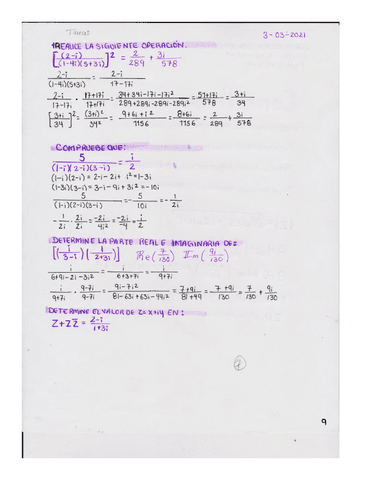 Tarea
3-03-2021
1 REALICE LA SIGUIENTE OPERACIÓN.
[(2-i)/(1-4i)(5+3i)]² = 2/289 + 3i/578
2-i/(1-4i)(5+3i) = 2-i/17-17i
2-i/17-17i · 17+17i/17+17i = 34+34i-17i-17i²/289+289i-289i-289i² = 51+17i/578 = 3+i/34
[3+i/34]² = (3+i)²/34² = 9+6i+i²/1156 = 8+6i/1156 = 2/289 + 3i/578
COMPRUEBE QUE:
5/(1-i)(2-i)(3-i) = i/2
(1-i)(2-i) = 2-i-2i+i² = 1-3i
(1-3i)(3-i) = 3-i-9i+3i² = -10i
5/(1-i)(2-i)(3-i) = -5/10i = -1/2i
-1/2i · 2i/2i = -2i/4i² = -2i/-4 = i/2
DETERMINE LA PARTE REAL E IMAGINARIA DE:
[(i/3-i)(1/2+3i)] Re(7/130) Im(9i/130)
i/6+9i-2i-3i² = i/6+3+7i = i/9+7i
i/9+7i · 9-7i/9-7i = 9i-7i²/81-63i+63i-49i² = 7+9i/81+49 = 7+9i/130 = 7/130 + 9i/130
DETERMINE EL VALOR DE Z=x+iy EN:
Z+Z Z̄ = 2-i/1+3i
9